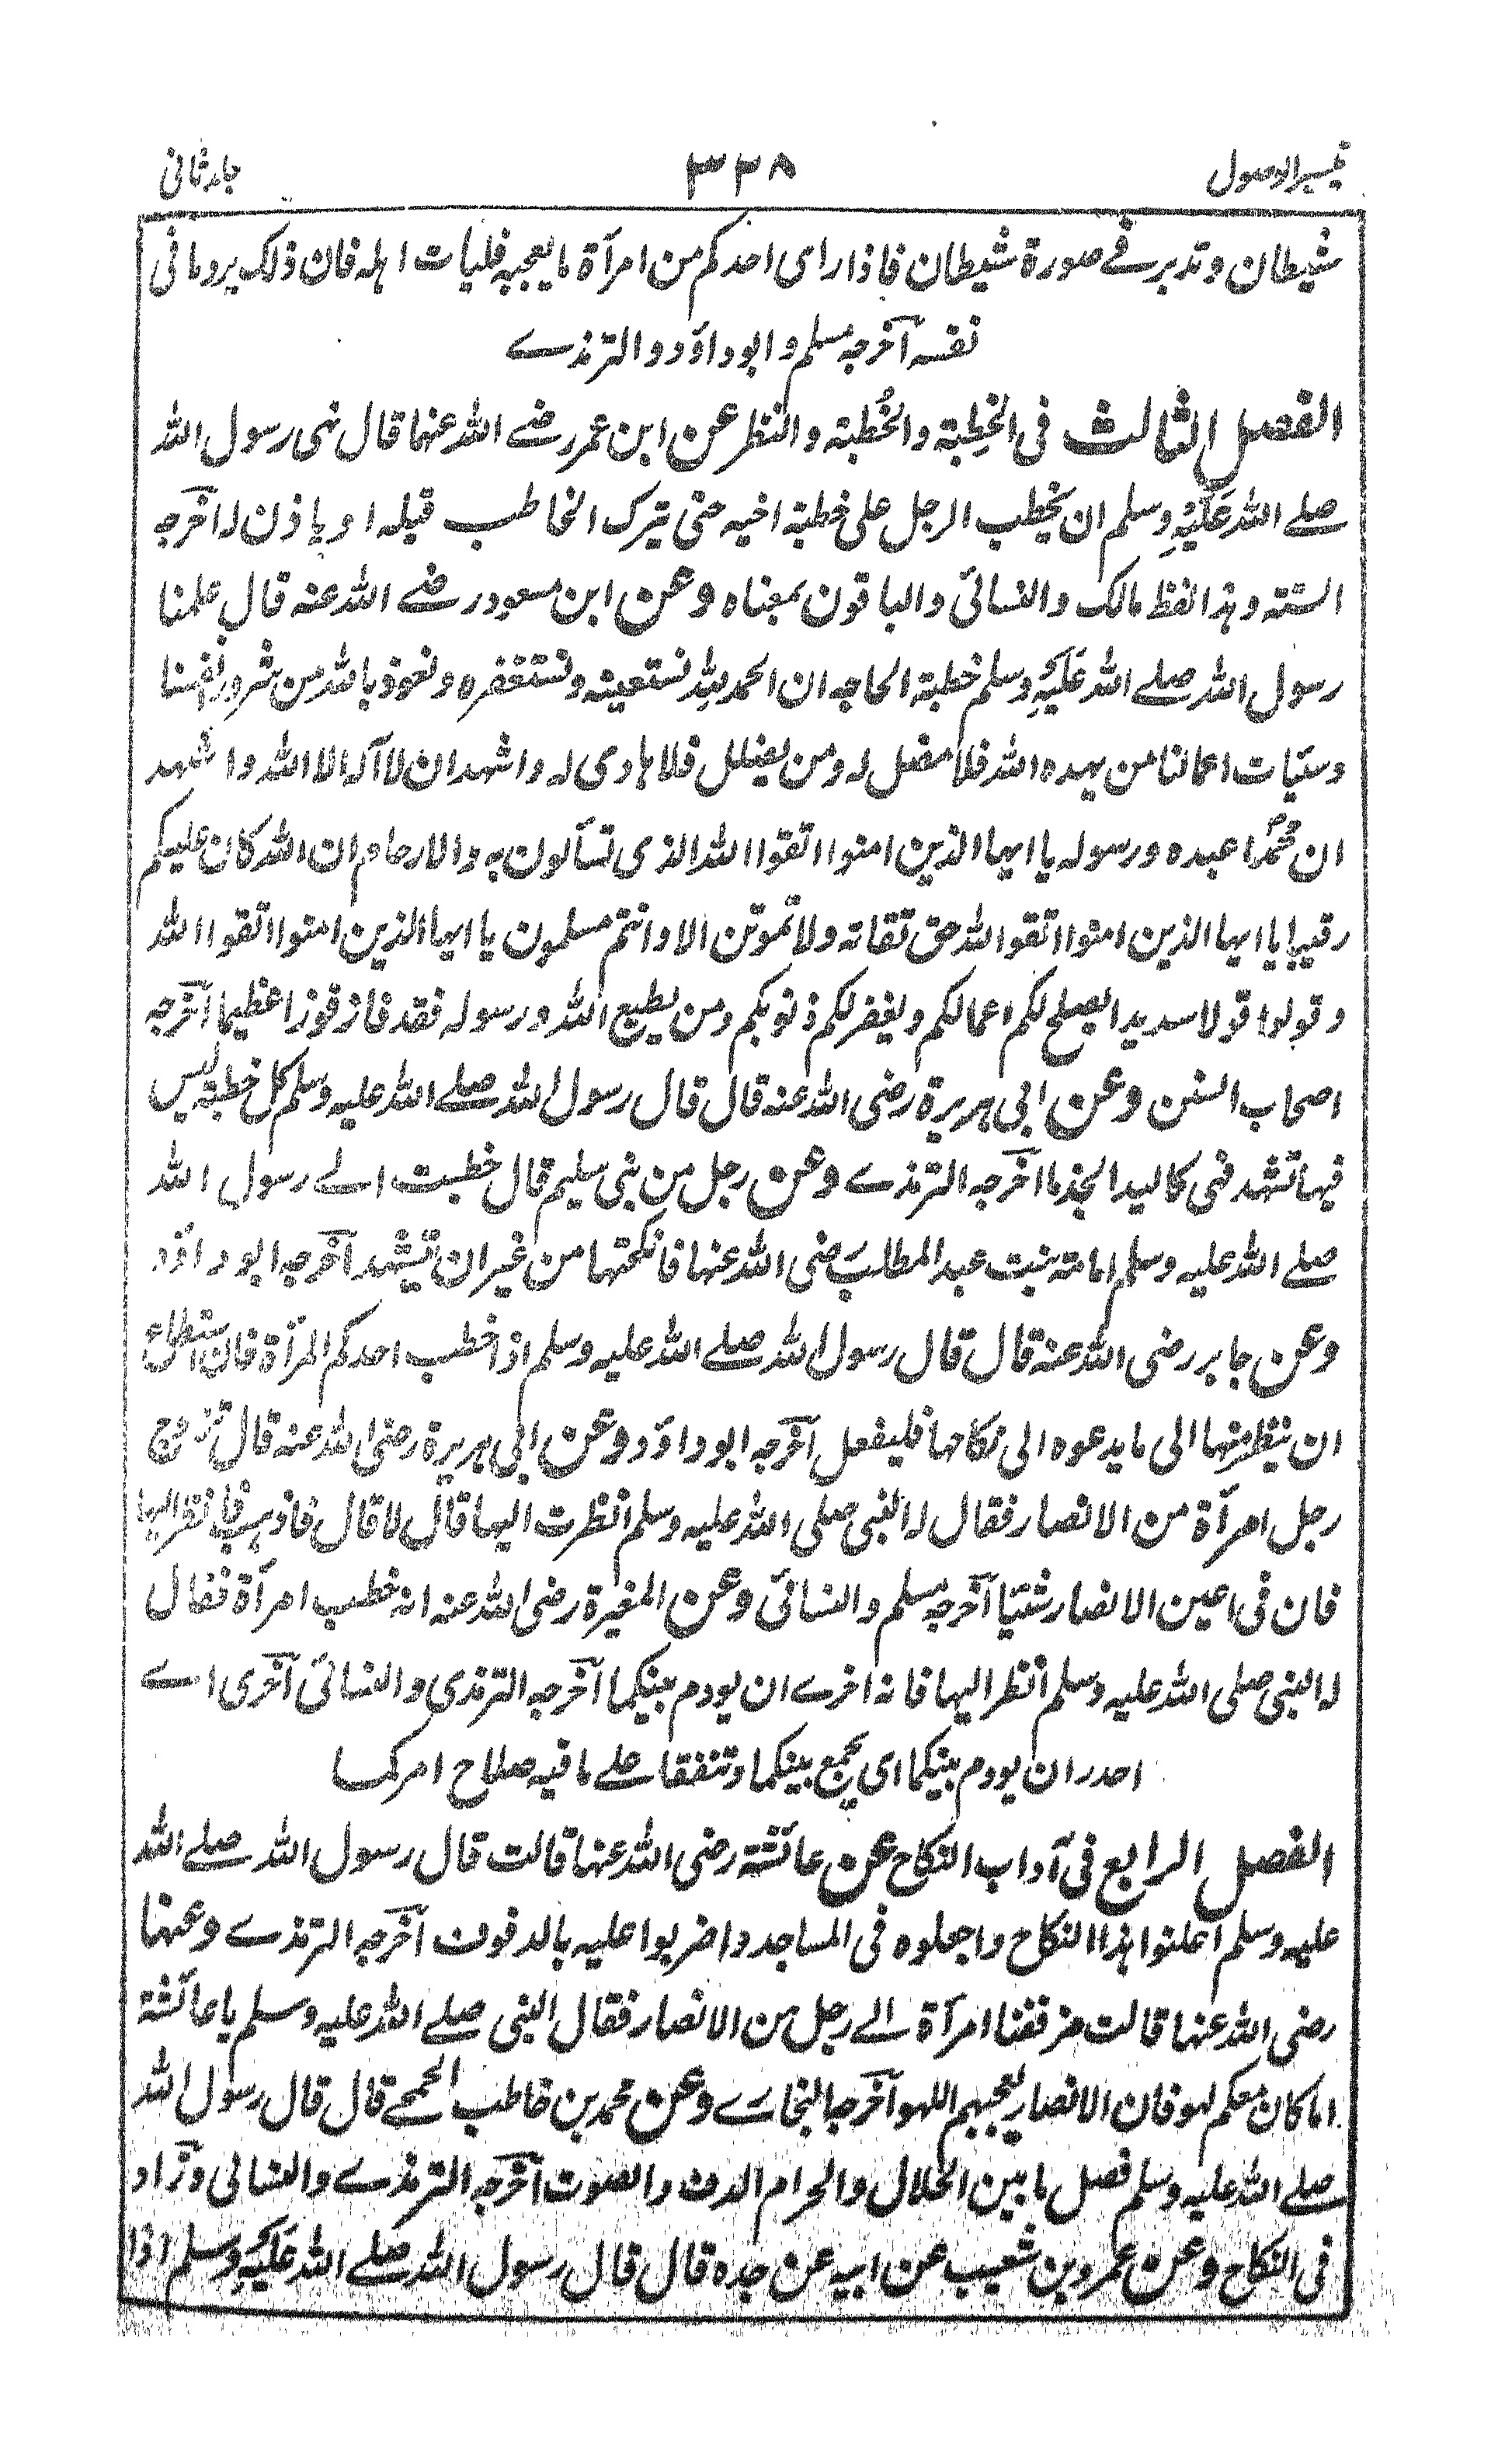 تيسير الوصول ٣٣٨ جلد ثانی
شيطان وتدبر فے صورة شيطان فاذا رای احدكم من امرآة ما يعجبه فليات اهله فان ذلک يرد ما فی
نفسه آخرجه مسلم و ابو داؤد والترمذے
الفصل الثالث فی الخِطبة والخُطبة والنظر عن ابن عمر رضے الله عنهما قال نهی رسول الله
صلے الله عَلَيْهِ وسلم ان يخطب الرجل علی خطبة اخيه حتی يترک الخاطب قبله او ياذن له آخرجه
الستة وهذا لفظ مالک والنسائی والباقون بمعناه وعن ابن مسعود رضے الله عنه قال علمنا
رسول الله صلے الله عَلَيْهِ وسلم خطبة الحاجه ان الحمد لِلّٰهِ نستعينه ونستغفره ونعوذ بالله من شرور انفسنا
وسئيات اعمالنا من يهده الله فلا مضل له ومن يضلل فلا هادی له واشهد ان لا آله الا الله واشهد
ان محمدًا عبده ورسوله يا ايها الذين امنوا اتقوا الله الذی تسآلون به والارحام ان الله كان عليكم
رقيبا يا ايها الذين امنوا اتقوا الله حق تقاته ولا تموتن الا وانتم مسلمون يا ايها الذين امنوا اتقوا الله
وقولوا قولا سديدا يصلح لكم اعمالكم ويغفر لكم ذنوبكم ومن يطيع الله ورسوله فقد فاز فوزا عظيما آخرجه
اصحاب السنن وعن ابی هريرة رضی الله عنه قال قال رسول الله صلے الله عليه وسلم كل خطبة ليس
فيها تشهد فهی كاليد الجذما آخرجه الترمذے وعن رجل من بنی سليم قال خطبت الے رسول الله
صلے الله عليه وسلم امامة بنت عبد المطلب رضی الله عنها فانكحتها من غير ان يتشهد آخرجه ابو داؤد
وعن جابر رضی الله عنه قال قال رسول الله صلے الله عليه وسلم اذا خطب احدكم المرآة فان استطاع
ان ينظر منها الی ما يدعوه الی نكاحها فليفعل آخرجه ابو داؤد وعن ابی هريرة رضی الله عنه قال تزوج
رجل امرآة من الانصار فقال له النبی صلی الله عليه وسلم انظرت اليها قال لا قال فاذهب فانظر اليها
فان فی اعين الانصار شئيا آخرجه مسلم والنسائی وعن المغيرة رضی الله عنه انه خطب امرآة فقال
له النبی صلی الله عليه وسلم انظر اليها فانه اخرے ان يودم بينكما آخرجه الترمذی والنسائی آخری اے
احدر ان يودم بينكما ای يجمع بينكما وتتفقا علے ما فيه صلاح امركما
الفصل الرابع فی آداب النكاح عن عائشة رضی الله عنها قالت قال رسول الله صلے الله
عليه وسلم اعلنوا هذا النكاح واجعلوه فی المساجد واضربوا عليه بالدفوف آخرجه الترمذے وعنها
رضی الله عنها قالت زففنا امرآة الے رجل من الانصار فقال النبی صلے الله عليه وسلم يا عائشة
اما كان معكم لهو فان الانصار يعجبهم اللهو آخرجه البخارے وعن محمد بن حاطب الجمحے قال قال رسول الله
صلے الله عليه وسلم فصل ما بين الحلال والحرام الدف والصوت آخرجه الترمذے والنسائی وزاد
فی النكاح وعن عمرو بن شعيب عن ابيه عن جده قال قال رسول الله صلے الله عَلَيْهِ وسلم اذا